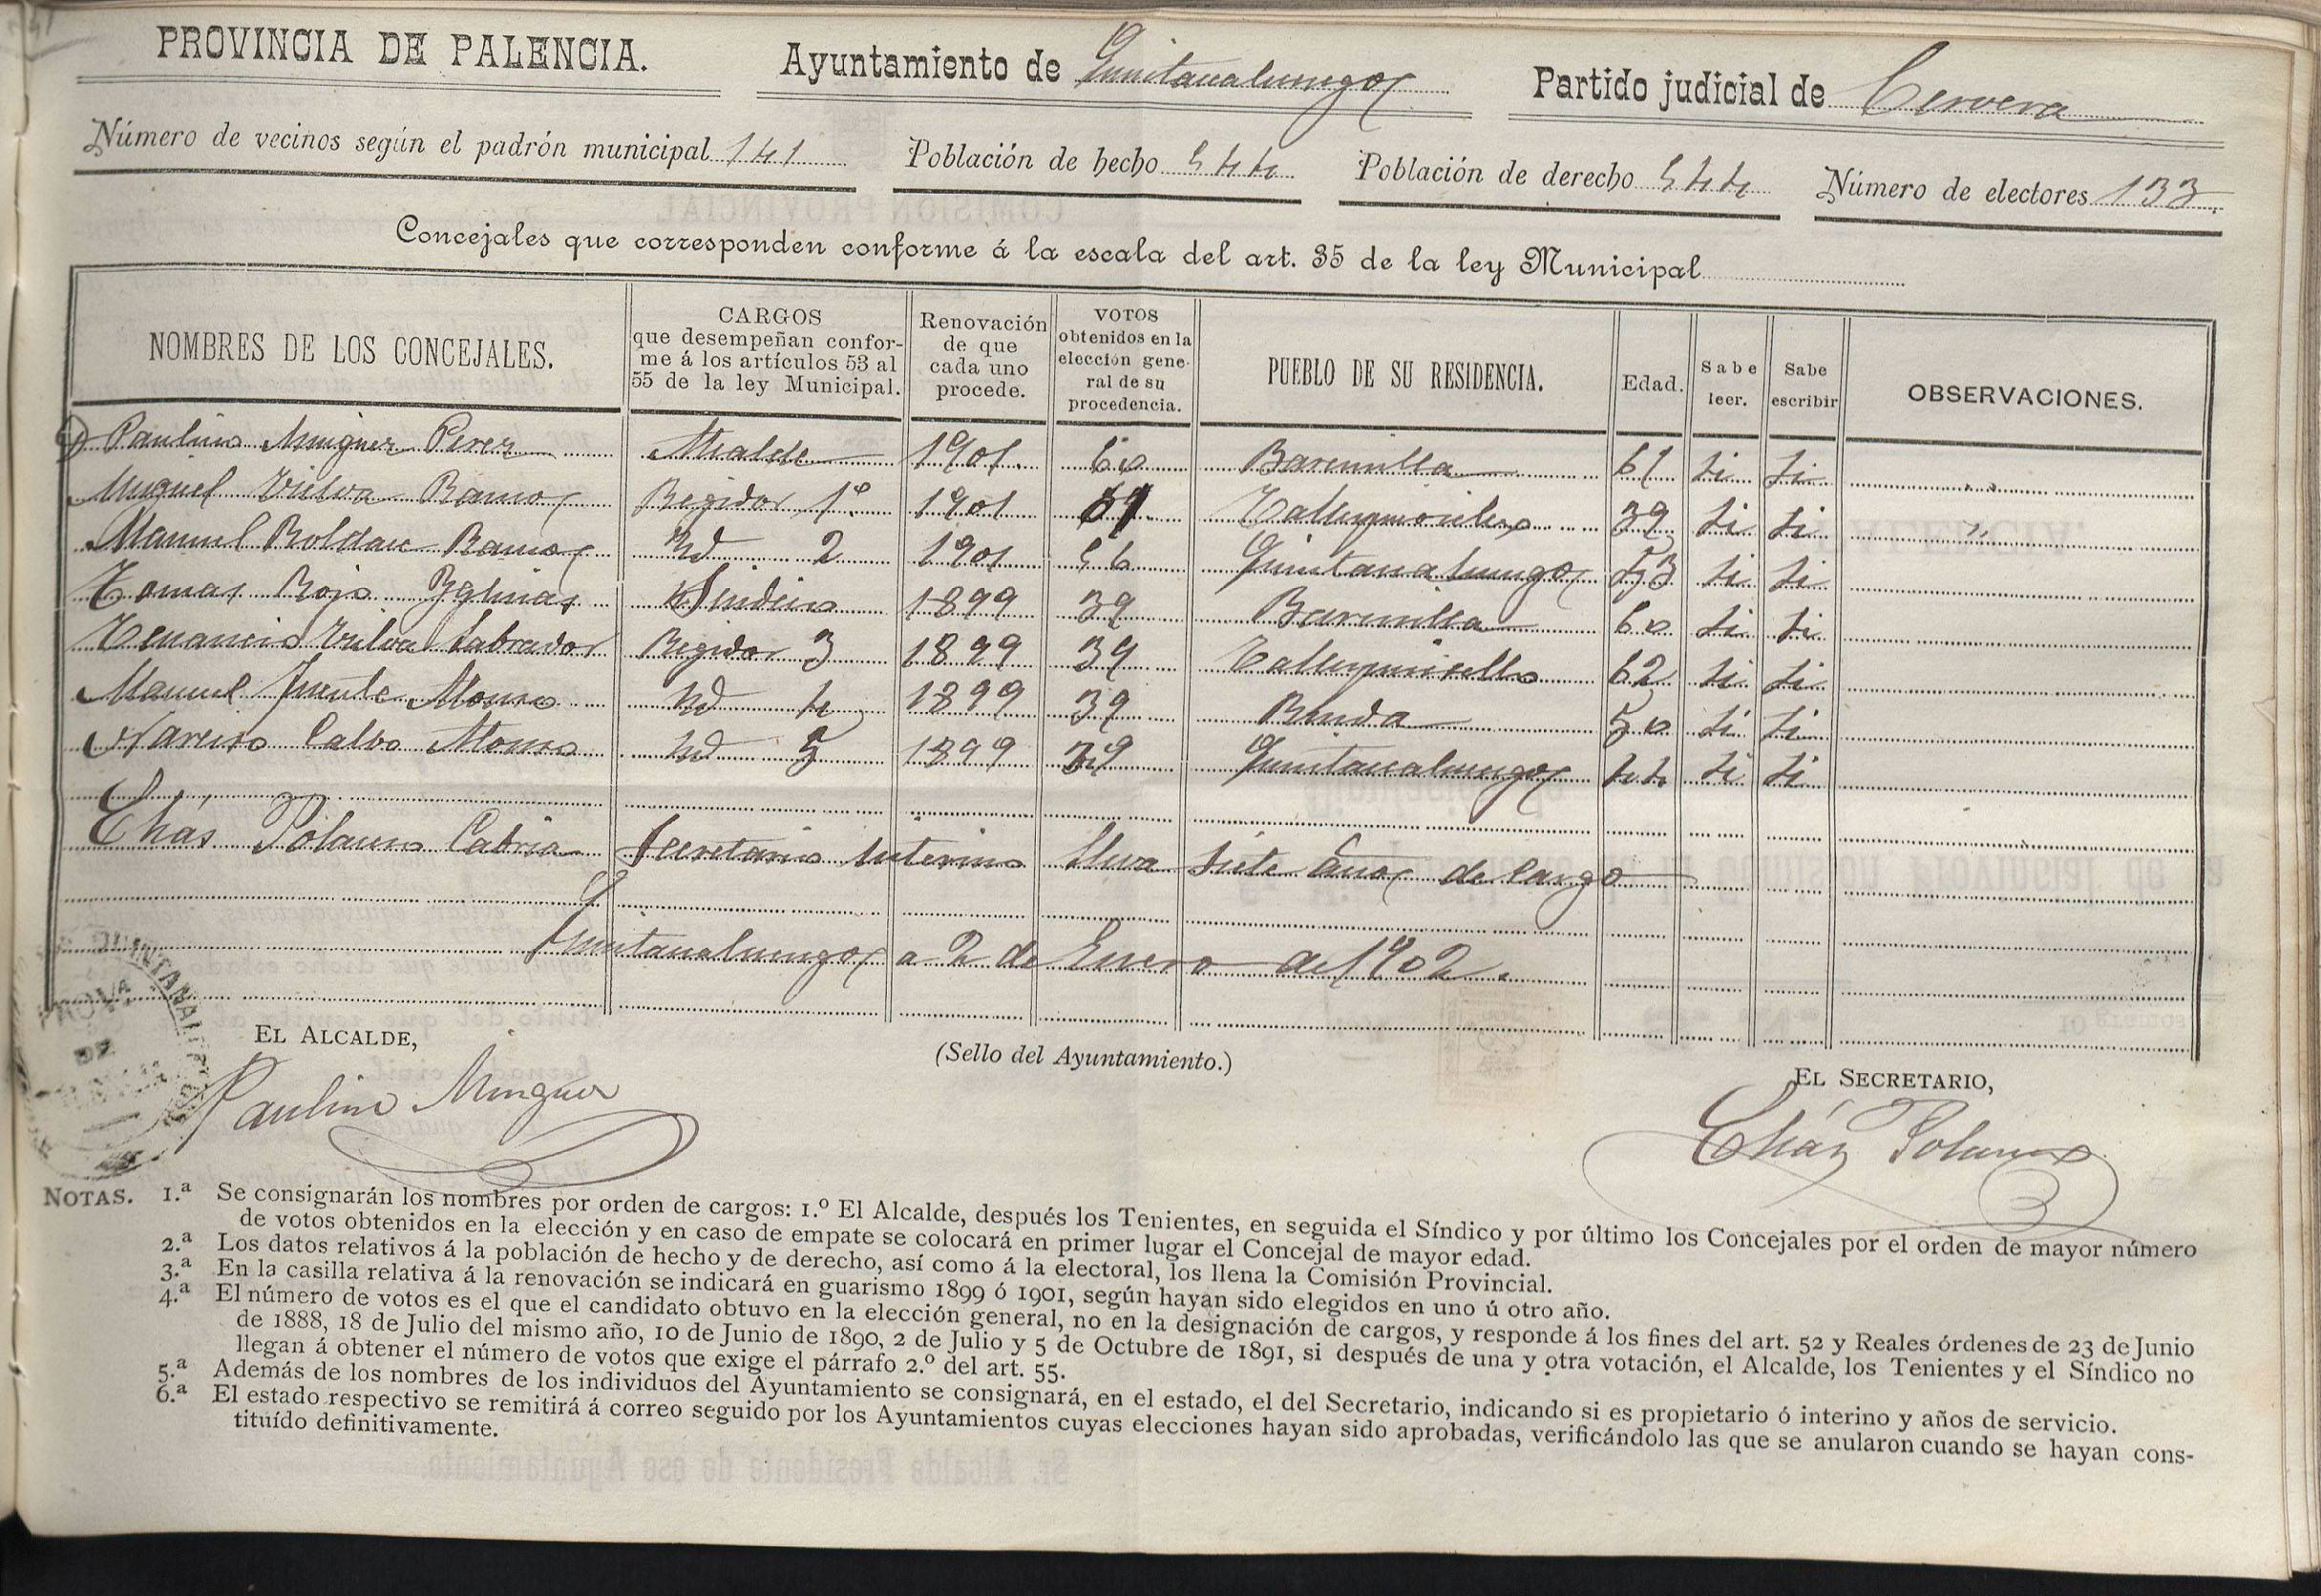 PROVINCIA DE PALENCIA. Ayuntamiento de Quintanaluengos Partido judicial de Cervera
Número de vecinos según el padrón municipal 141 Población de hecho 544 Población de derecho 544 Número de electores 133.
Concejales que corresponden conforme á la escala del art. 35 de la ley Municipal
NOMBRES DE LOS CONCEJALES. CARGOS que desempeñan confor-me á los artículos 53 al 55 de la ley Municipal. Renovación de que cada uno procede. VOTOS obtenidos en la elección gene-ral de su procedencia. PUEBLO DE SU RESIDENCIA. Edad. Sabe leer. Sabe escribir OBSERVACIONES.
Paulino Minguez Perez Alcalde 1901. 60 Barcenilla 61 Si Si
Miguel Vielva Ramos Regidor 1º. 1901 39 Si Si "
Manuel Roldan Ramos Id 2 1901 56 Quintanaluengos 53 Si Si
Tomas Rojo Yglesias Sindico 1899 39 Barcenilla 60 Si Si
Venancio Vielva Labrador Regidor 3 1899 39 62 Si Si
Manuel Fuente Alonso Id 4 1899 39 Rueda 50 Si Si
Narciso Calvo Alonso Id 5 1899 39 Quintanaluengos 44 Si Si
Elías Polanco Cabria Secretario interino lleva siete años de cargo
Quintanaluengos a 2 de Enero de 1902.
QUINTANAL
EL ALCALDE,
(Sello del Ayuntamiento.)
EL SECRETARIO,
Paulino Minguez
Elías Polanco
NOTAS. 1.ª Se consignarán los nombres por orden de cargos: 1.º El Alcalde, después los Tenientes, en seguida el Síndico y por último los Concejales por el orden de mayor número
de votos obtenidos en la elección y en caso de empate se colocará en primer lugar el Concejal de mayor edad.
2.ª Los datos relativos á la población de hecho y de derecho, así como á la electoral, los llena la Comisión Provincial.
3.ª En la casilla relativa á la renovación se indicará en guarismo 1899 ó 1901, según hayan sido elegidos en uno ú otro año.
4.ª El número de votos es el que el candidato obtuvo en la elección general, no en la designación de cargos, y responde á los fines del art. 52 y Reales órdenes de 23 de Junio
de 1888, 18 de Julio del mismo año, 10 de Junio de 1890, 2 de Julio y 5 de Octubre de 1891, si después de una y otra votación, el Alcalde, los Tenientes y el Síndico no
llegan á obtener el número de votos que exige el párrafo 2.º del art. 55.
5.ª Además de los nombres de los individuos del Ayuntamiento se consignará, en el estado, el del Secretario, indicando si es propietario ó interino y años de servicio.
6.ª El estado respectivo se remitirá á correo seguido por los Ayuntamientos cuyas elecciones hayan sido aprobadas, verificándolo las que se anularon cuando se hayan cons-
tituído definitivamente.